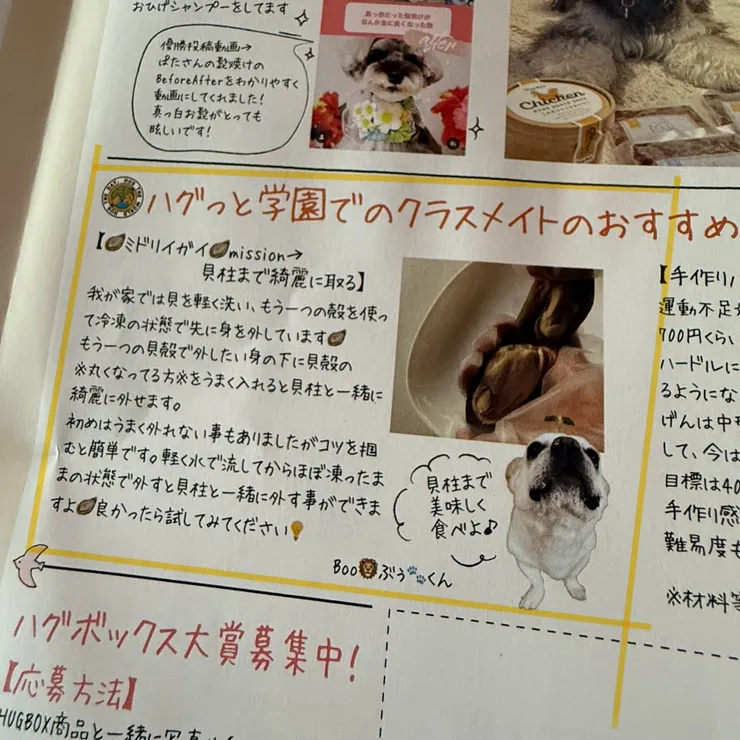 おひげシャンプーをしてます
優勝投稿動画→
ぱたさんの殻焼けの
BeforeAfterをわかりやすく
動画にしてくれました!
真っ白お殻がとっても
眩しいです!
真っ赤だった殻焼けが
なんか急に良くなった話
Chicken
ハグっと学園でのクラスメイトのおすすめ
【ミドリイガイmission→
貝柱まで綺麗に取る】
我が家では貝を軽く洗い、もう一つの殻を使っ
て冷凍の状態で先に身を外しています
もう一つの貝殻で外したい身の下に貝殻の
※丸くなってる方※をうまく入れると貝柱と一緒に
綺麗に外せます。
初めはうまく外れない事もありましたがコツを掴
むと簡単です。軽く水で流してからほぼ凍ったま
まの状態で外すと貝柱と一緒に外す事ができま
すよ良かったら試してみてください
貝柱まで
美味しく
食べよ♪
Booぶぅくん
【手作り
運動不足
700円くらい
ハードルに
るようにな
げんは中
して、今は
目標は40
手作り感
難易度も
※材料等
ハグボックス大賞募集中!
【応募方法】
HUGBOX商品と一緒に